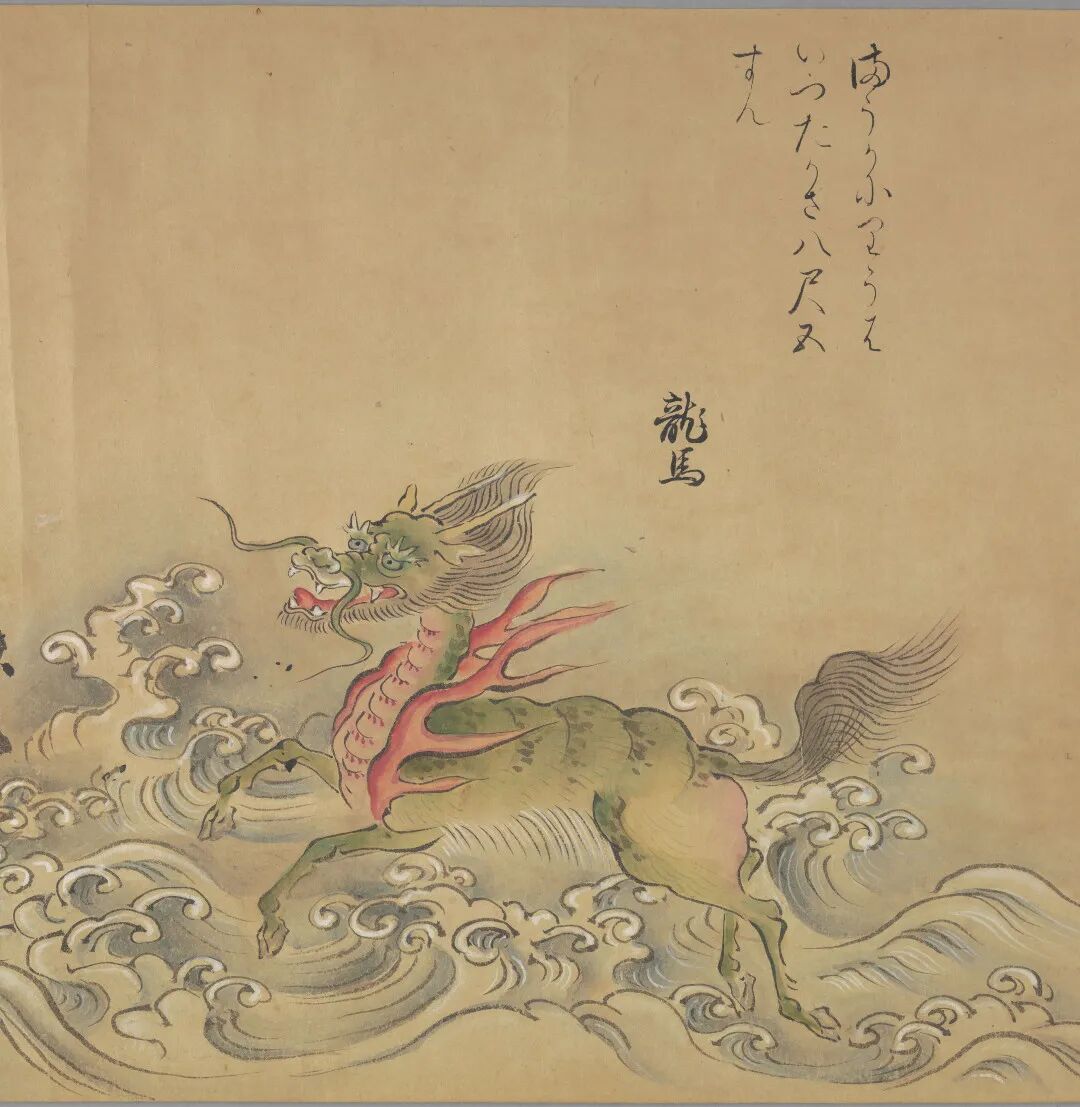 まうかにりうは
いつたかさ八尺五
すん
龍馬